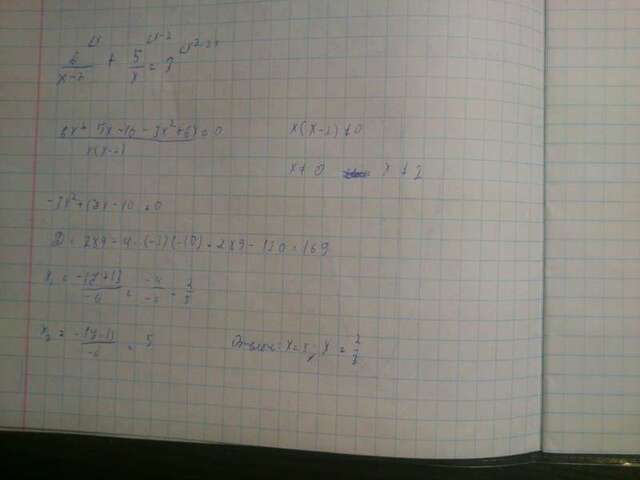 6/(x-2) + 5/x = 3
(6x + 5x - 10 - 3x² + 6x)/(x(x-2)) = 0
x(x-2) ≠ 0
x ≠ 0   x ≠ 2
-3x² + 17x - 10 = 0
D = 289 - 4 · (-3)(-10) = 289 - 120 = 169
x₁ = (-17+13)/(-6) = (-4)/(-6) = 2/3
x₂ = (-17-13)/(-6) = 5
x = 5; x = 2/3